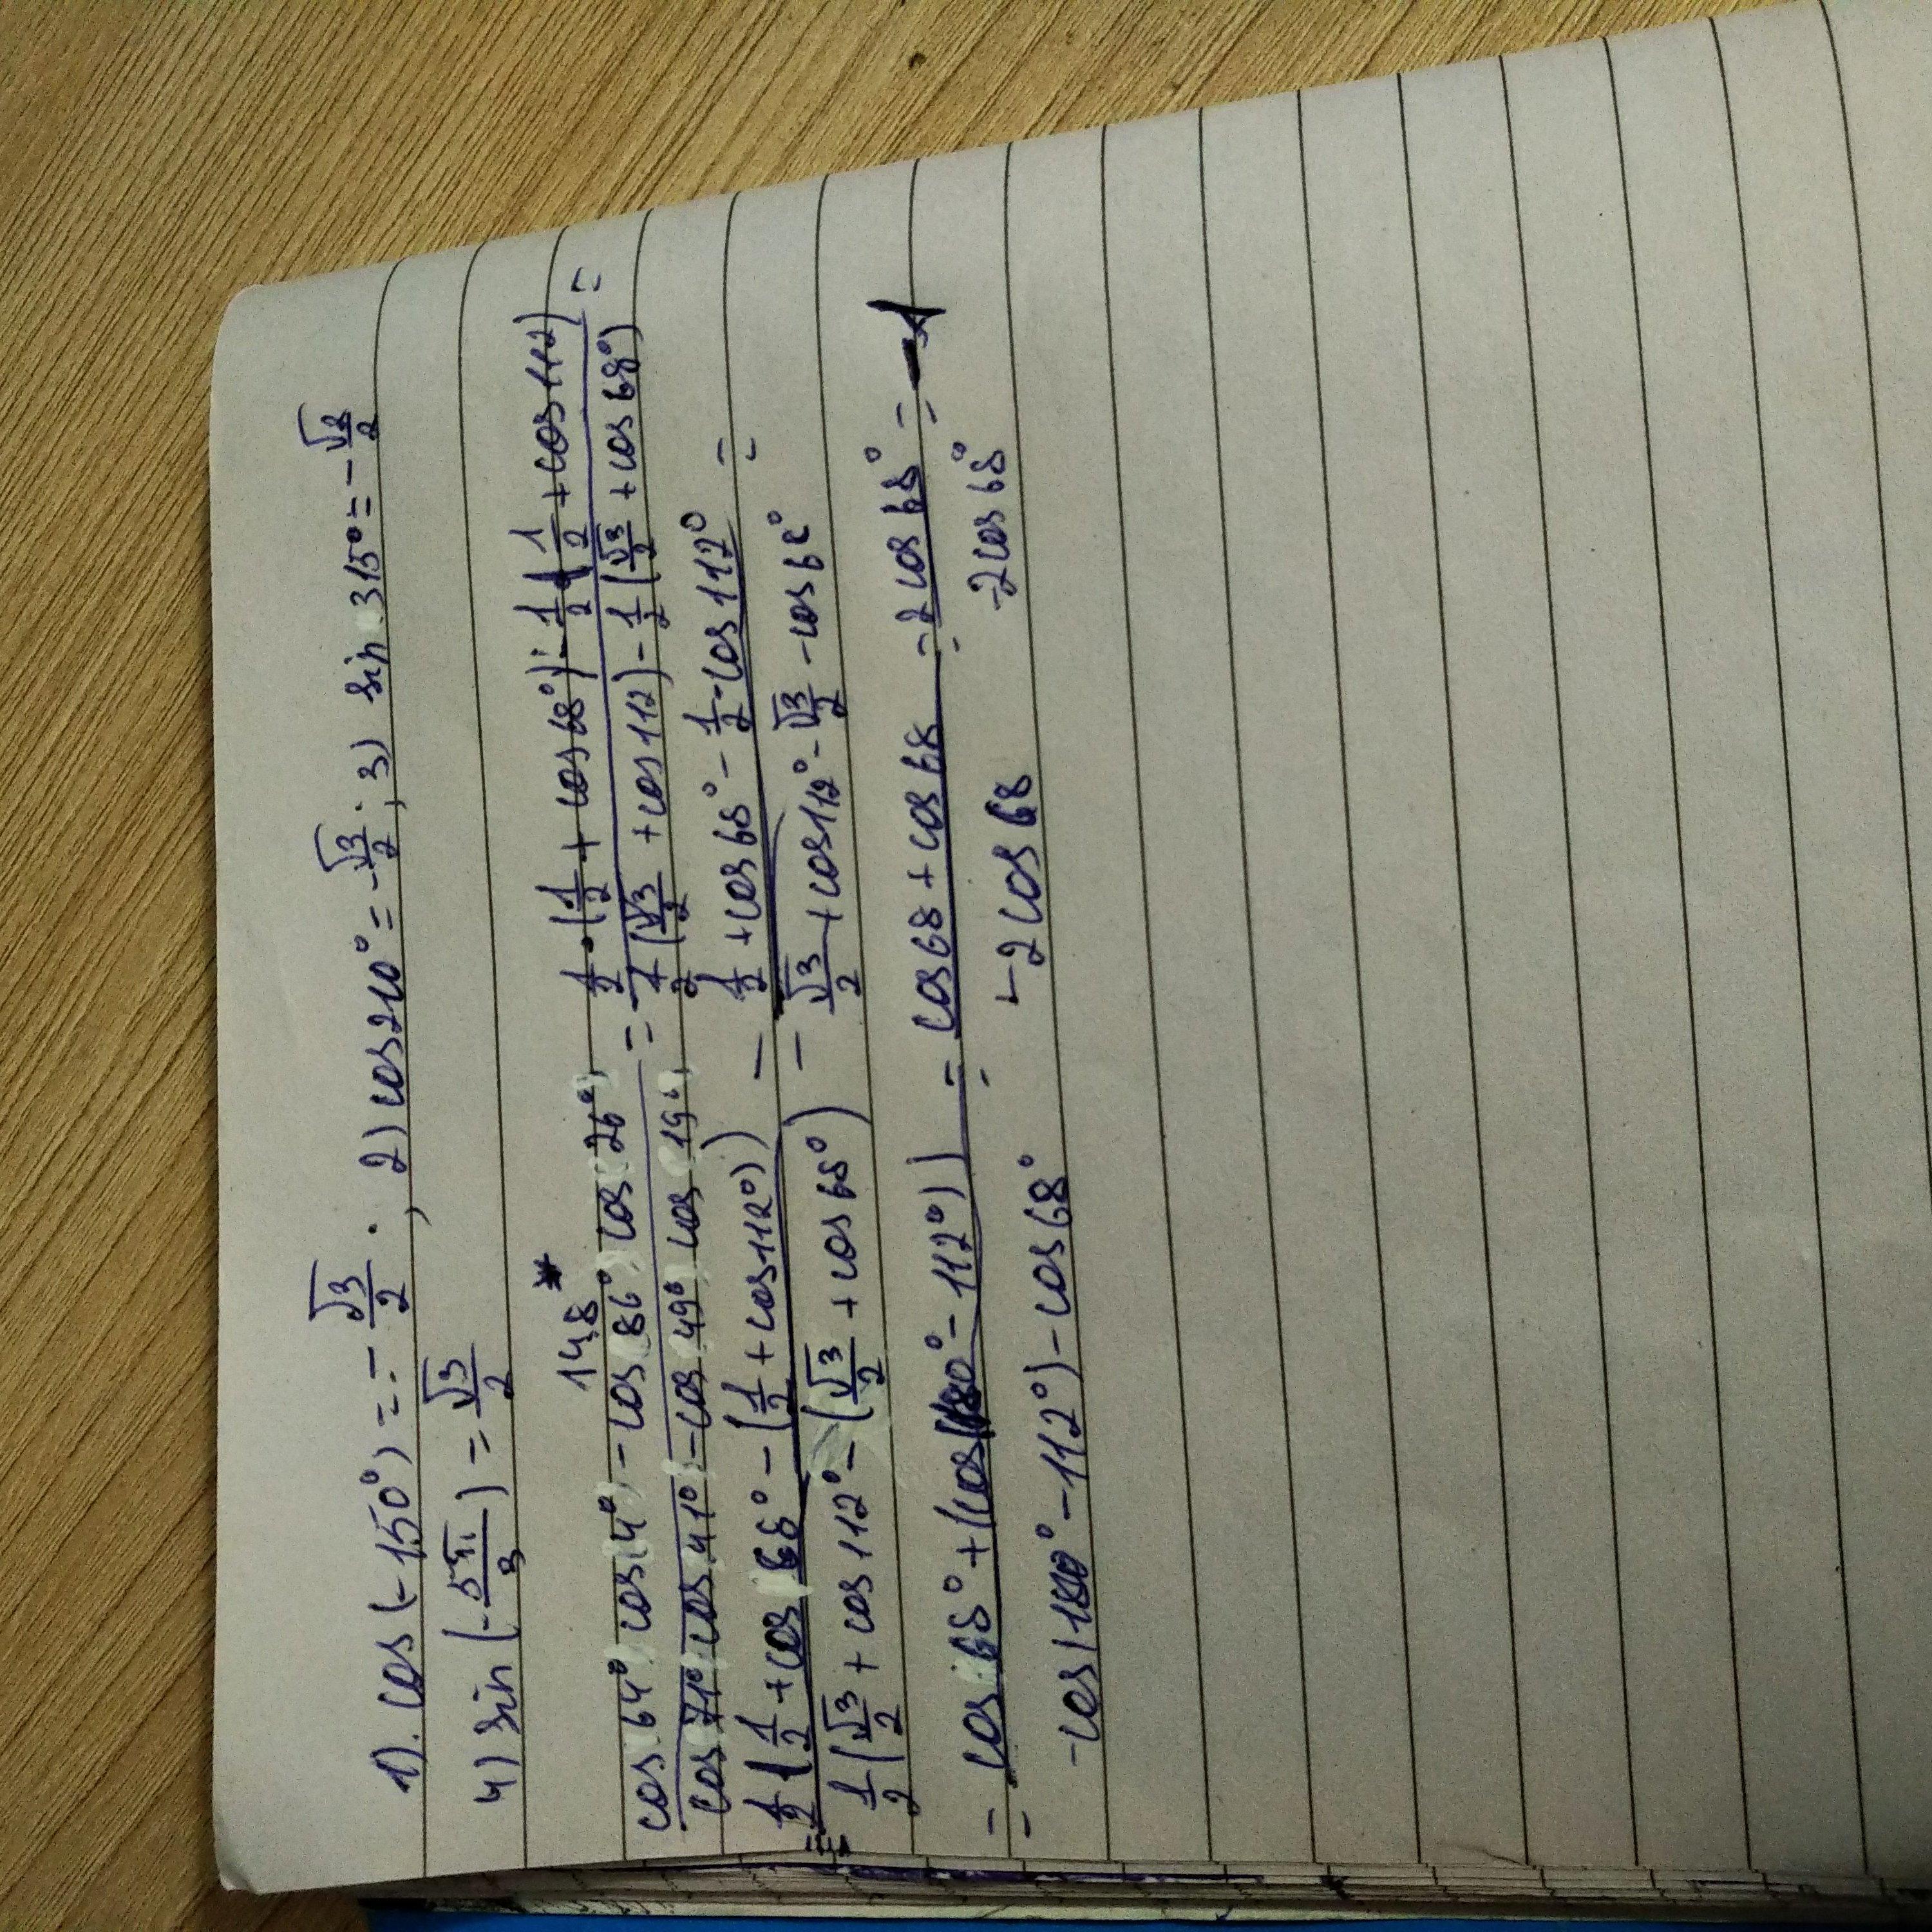 1). cos(-150°) = -√3/2 ; 2) cos210° = -√3/2 ; 3) sin 315° = -√3/2
4) sin(-5π/3) = √3/2
148*
(cos 64° cos 4° - cos 86° cos 26°)/(cos 71° cos 41° - cos 49° cos 19°) = (1/2·(1/2 + cos 68°) - 1/2(1/2 + cos 112))/(1/2(√3/2 + cos 112) - 1/2(√3/2 + cos 68°)) =
= (1/2(1/2 + cos 68° - (1/2 + cos 112°)))/(1/2(√3/2 + cos 112° - (√3/2 + cos 68°)) = (1/2 + cos 68° - 1/2 - cos 112°)/(√3/2 + cos 112° - √3/2 - cos 68°) =
= (cos 68° + (cos(180° - 112°))/(-cos(180° - 112°) - cos 68°) = (cos 68 + cos 68)/(-2 cos 68) = (2 cos 68°)/(-2 cos 68°) = -1